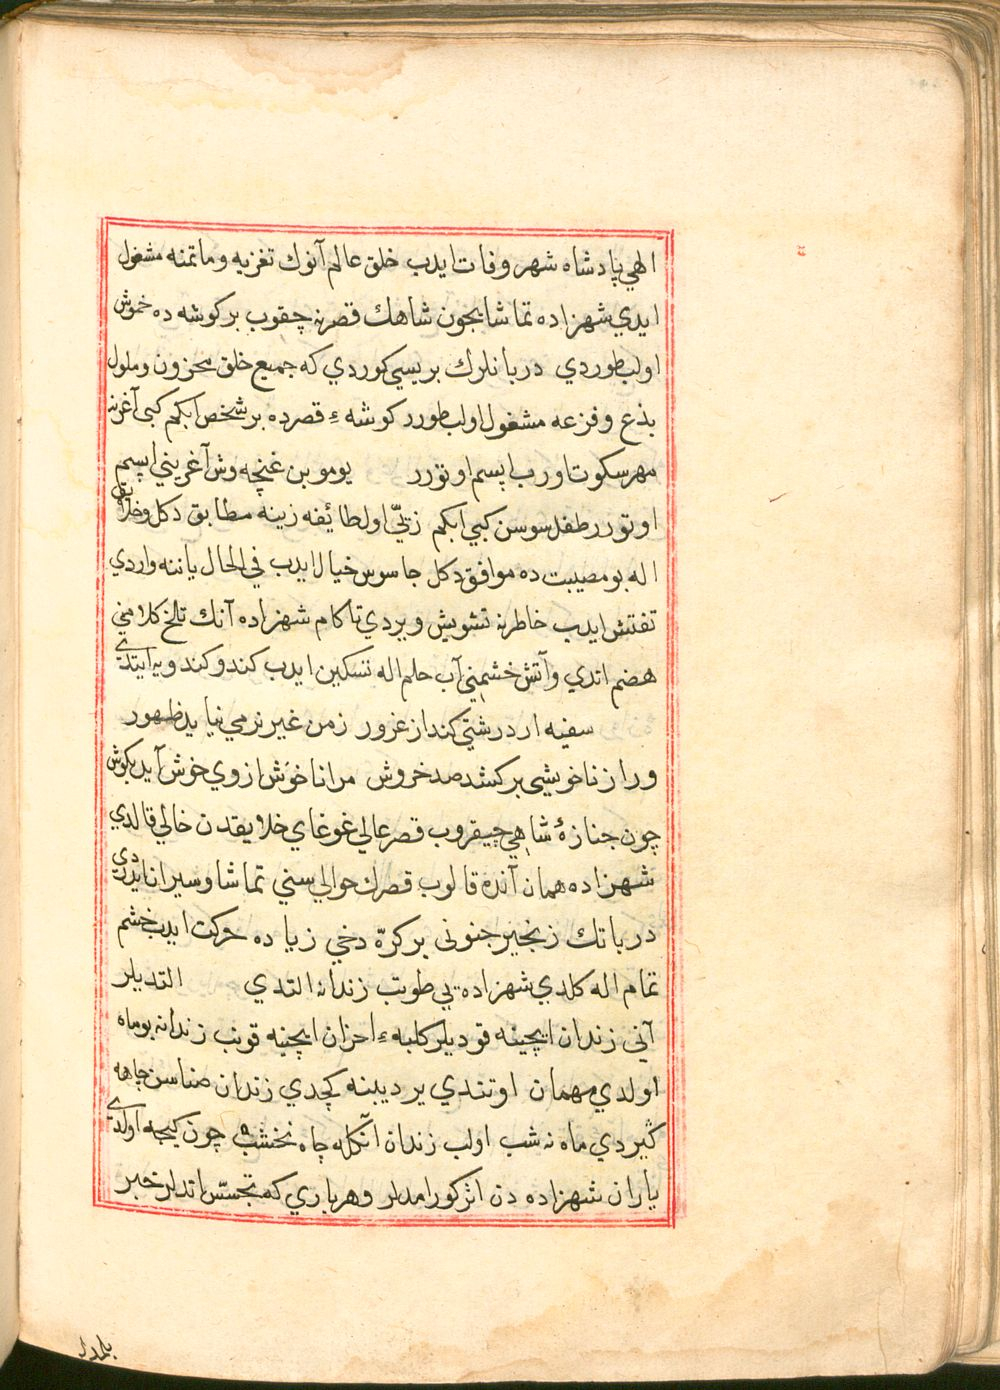 الهي پادشاه شهر وفات ايدب خلق عالم آنوك تغزيه وماتمنه مشغول
ايدي شهزاده تماشا ايچون شاهك قصرنه چقوب بر كوشه ده خموش
اولب طوردي دربانلرك بريسي كوردي كه جميع خلق محزون وملول
بذع وفزعه مشغول اولب طورر كوشهء قصرده بر شخص ابكم كبي آغزنه
مهر سكوت اورب اپسم اوتورر يوموبن غنچه وش آغزيني اپسم
اوتورر طفل سوسن كبي ابكم زيّي اول طائفه زينه مطابق دكل وخلائق
اله بو مصيبت ده موافق دكل جاسوس خيال ايدب في الحال ياننه واردي
تفتش ايدب خاطرنه تشويش ويردي تا كام شهزاده آنك تلخ كلامني
هضم اتدي وآتش خشمني آب حلم اله تسكين ايدب كندو كندويه ايتدي
سفيه ار درشتي كند از غرور ز من غير نرمي نيايد ظهور
ور از ناخوشي بركشد صد خروش مرا ناخوش از وي خوش آيد بكوش
چون جنازهٔ شاهي چيقروب قصر عالي غوغاي خلايقدن خالي قالدي
شهزاده همان آنده قالوب قصرك حوالي سني تماشا وسيران ايدردي
درباتك زنجير جنونى بر كرّه دخي زياده حركت ايدب خشم
تمام اله كلدي شهزاده يي طوتب زندانه التدي التديلر
آني زندان ايچينه قوديلر كلبهء احزان ايچنيه قونب زندانه بو ماه
اولدي مهمان اوتندي ير ديبنه كچدي زندان صناسن چاهه
كيردي ماه نه شب اولب زندان انكله چاه نخشب چون كيجه اولدي
ياران شهزاده دن اثر كورامدلر وهر باري كه تجسّس اتدلر خبر
بلمدلر